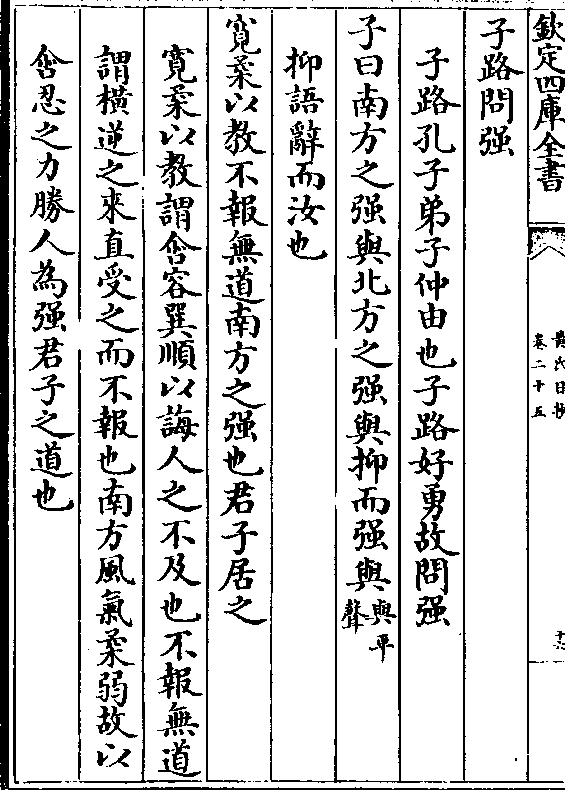 欽定四庫全書
黃氏日抄
卷二十五
十六
子路問强
子路孔子弟子仲由也子路好勇故問强
子曰南方之强與北方之强與抑而强與與平聲
抑語辭而汝也
寛柔以教不報無道南方之强也君子居之
寛柔以教謂含容巽順以誨人之不及也不報無道
謂横逆之來直受之而不報也南方風氣柔弱故以
含忍之力勝人為强君子之道也